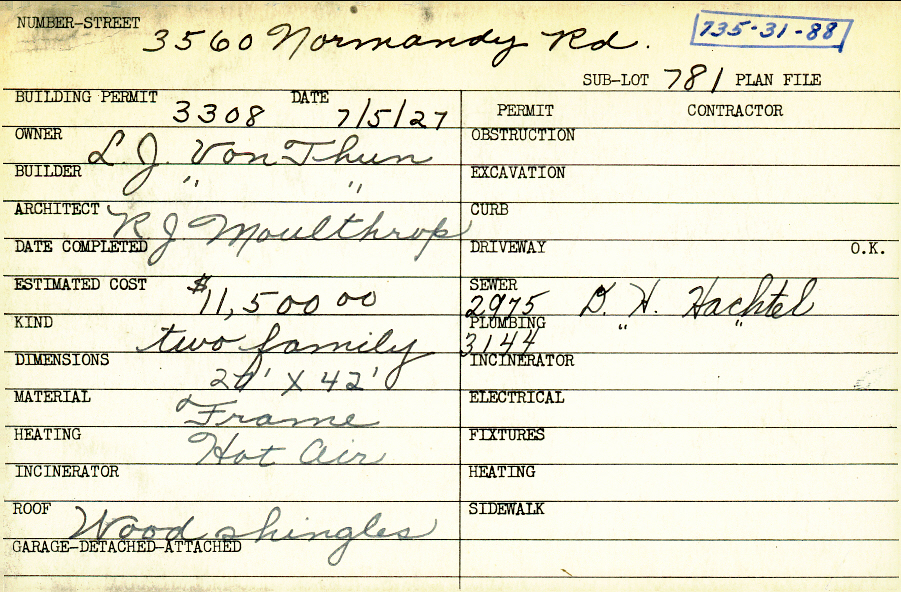 NUMBER-STREET 3560 Normandy Rd. 735-31-88
SUB-LOT 781 PLAN FILE
BUILDING PERMIT 3308 DATE 7/5/27
PERMIT CONTRACTOR
OWNER L. J. Von Thun
OBSTRUCTION
BUILDER " "
EXCAVATION
ARCHITECT R J Moulthrop
CURB
DATE COMPLETED
DRIVEWAY O.K.
ESTIMATED COST $11,500 00
SEWER 2975 D. H. Hachtel
KIND two family
PLUMBING 3144 " "
DIMENSIONS X 42'
INCINERATOR
MATERIAL Frame
ELECTRICAL
HEATING Hot Air
FIXTURES
INCINERATOR
HEATING
ROOF Wood shingles
SIDEWALK
GARAGE-DETACHED-ATTACHED